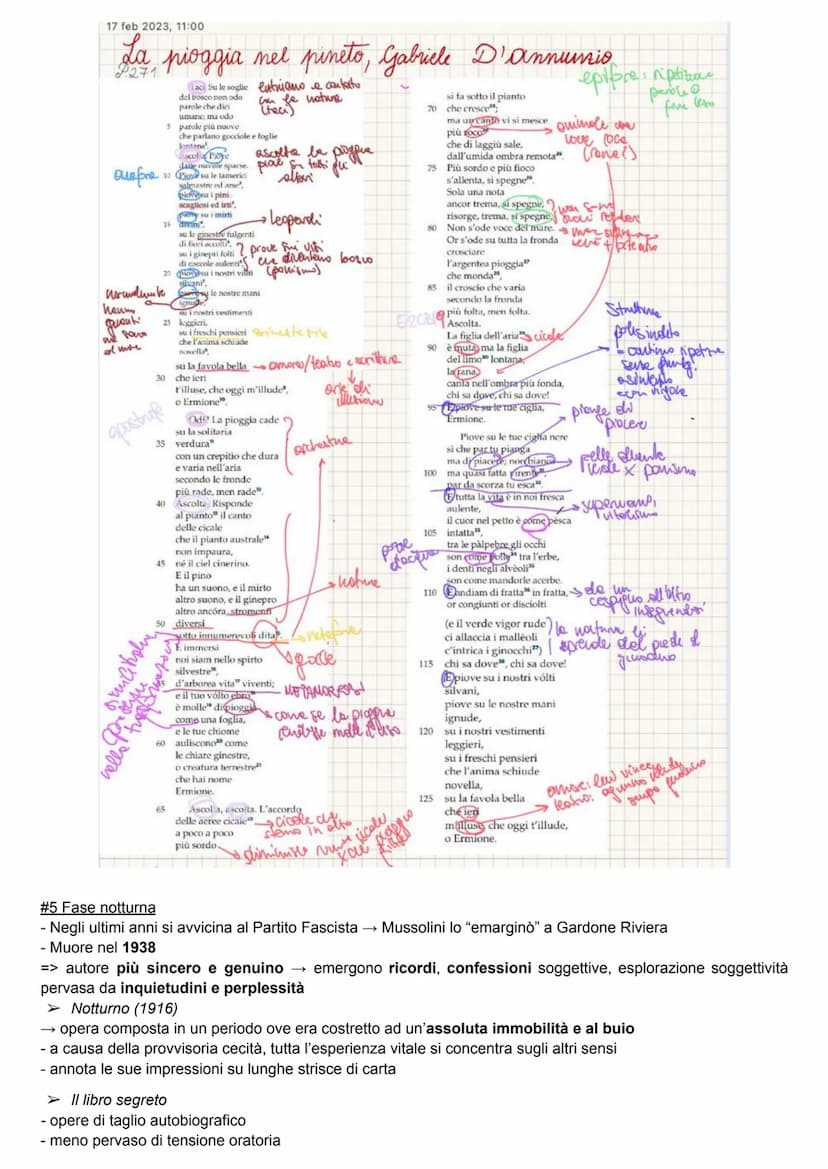 17 feb 2023, 11:00
La pioggia nel pineto, Gabriele D'Annunzio
P.271
Taci. Su le soglie
del bosco non odo
parole che dici
umane; ma odo
5 parole più nuove
che parlano gocciole e foglie
lontane.
Ascolta. Piove
dalle nuvole sparse.
10 Piove su le tamerici
salmastre ed arse,
piove su i pini
scagliosi ed irti,
piove su i mirti
15 divini,
su le ginestre fulgenti
di fiori accolti,
su i ginepri folti
di coccole aulenti,
20 piove su i nostri vólti
silvani,
piove su le nostre mani
ignude,
su i nostri vestimenti
25 leggieri,
su i freschi pensieri
che l'anima schiude
novella,
su la favola bella
30 che ieri
t'illuse, che oggi m'illude,
o Ermione.
Odi? La pioggia cade
su la solitaria
35 verdura
con un crepitìo che dura
e varia nell'aria
secondo le fronde
più rade, men rade.
40 Ascolta. Risponde
al pianto il canto
delle cicale
che il pianto australe
non impaura,
45 né il ciel cinerino.
E il pino
ha un suono, e il mirto
altro suono, e il ginepro
altro ancóra, stromenti
50 diversi
sotto innumerevoli dita.
E immersi
noi siam nello spirto
silvestre,
55 d'arborea vita viventi;
e il tuo vólto ebro
è molle di pioggia
come una foglia,
e le tue chiome
60 auliscono come
le chiare ginestre,
o creatura terrestre
che hai nome
Ermione.
65 Ascolta, ascolta. L'accordo
delle aeree cicale
a poco a poco
più sordo
entriamo a contatto
con la natura
(taci)
ascolta la pioggia
anafora
leopardi
(panismo)
amore/teatro e scrittura
arte di
illusione
apostrofe
orchestra
natura
metafora
gocce
METAMORFOSI
come se la pioggia
cicale che
stanno in alto
epifora: ripetizione
parola
fine verso
si fa sotto il pianto
70 che cresce;
ma un canto vi si mesce
più roco
che di laggiù sale,
dall'umida ombra remota.
75 Più sordo e più fioco
s'allenta, si spegne.
Sola una nota
ancor trema, si spegne,
risorge, trema, si spegne.
80 Non s'ode voce del mare.
Or s'ode su tutta la fronda
crosciare
l'argentea pioggia
che monda,
85 il croscio che varia
secondo la fronda
più folta, men folta.
Ascolta.
La figlia dell'aria
90 è muta; ma la figlia
del limo lontana,
la rana,
canta nell'ombra più fonda,
chi sa dove, chi sa dove!
95 E piove su le tue ciglia,
Ermione.
Piove su le tue ciglia nere
sì che par tu pianga
ma di piacere; non bianca
100 ma quasi fatta virente,
par da scorza tu esca.
E tutta la vita è in noi fresca
aulente,
il cuor nel petto è come pèsca
105 intatta,
tra le pàlpebre gli occhi
son come polle tra l'erbe,
i denti negli alvèoli
son come mandorle acerbe.
110 E andiam di fratta in fratta,
or congiunti or disciolti
(e il verde vigor rude
ci allaccia i mallèoli
c'intrica i ginocchi)
115 chi sa dove, chi sa dove!
E piove su i nostri vólti
silvani,
piove su le nostre mani
ignude,
120 su i nostri vestimenti
leggieri,
su i freschi pensieri
che l'anima schiude
novella,
125 su la favola bella
che ieri
m'illuse, che oggi t'illude,
o Ermione.
cicale
Struttura
polisindeto
piange di
piacere
pelle diventa
superuomo,
vitalismo
pozze
d'acqua
da un
cespuglio all'altro
la natura li
#5 Fase notturna
- Negli ultimi anni si avvicina al Partito Fascista → Mussolini lo “emarginò” a Gardone Riviera
- Muore nel 1938
=> autore più sincero e genuino → emergono ricordi, confessioni soggettive, esplorazione soggettività
pervasa da inquietudini e perplessità
➢ Notturno (1916)
→ opera composta in un periodo ove era costretto ad un’assoluta immobilità e al buio
- a causa della provvisoria cecità, tutta l’esperienza vitale si concentra sugli altri sensi
- annota le sue impressioni su lunghe strisce di carta
➢ Il libro segreto
- opere di taglio autobiografico
- meno pervaso di tensione oratoria